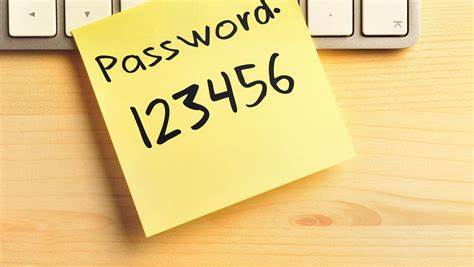 Password.
123456